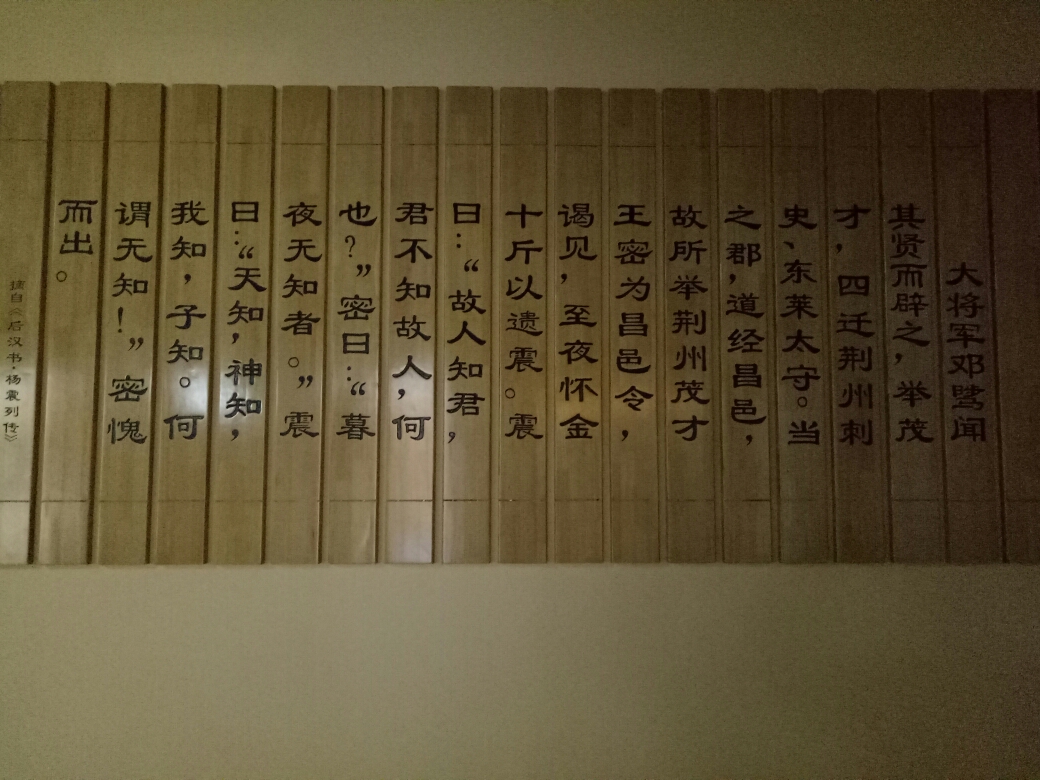 大将军邓骘闻
其贤而辟之，举茂
才，四迁荆州刺
史、东莱太守。当
之郡，道经昌邑，
故所举荆州茂才
王密为昌邑令，
谒见，至夜怀金
十斤以遗震。震
曰：“故人知君，
君不知故人，何
也？”密曰：“暮
夜无知者。”震
曰：“天知，神知，
我知，子知。何
谓无知！”密愧
而出。
摘自《后汉书·杨震列传》